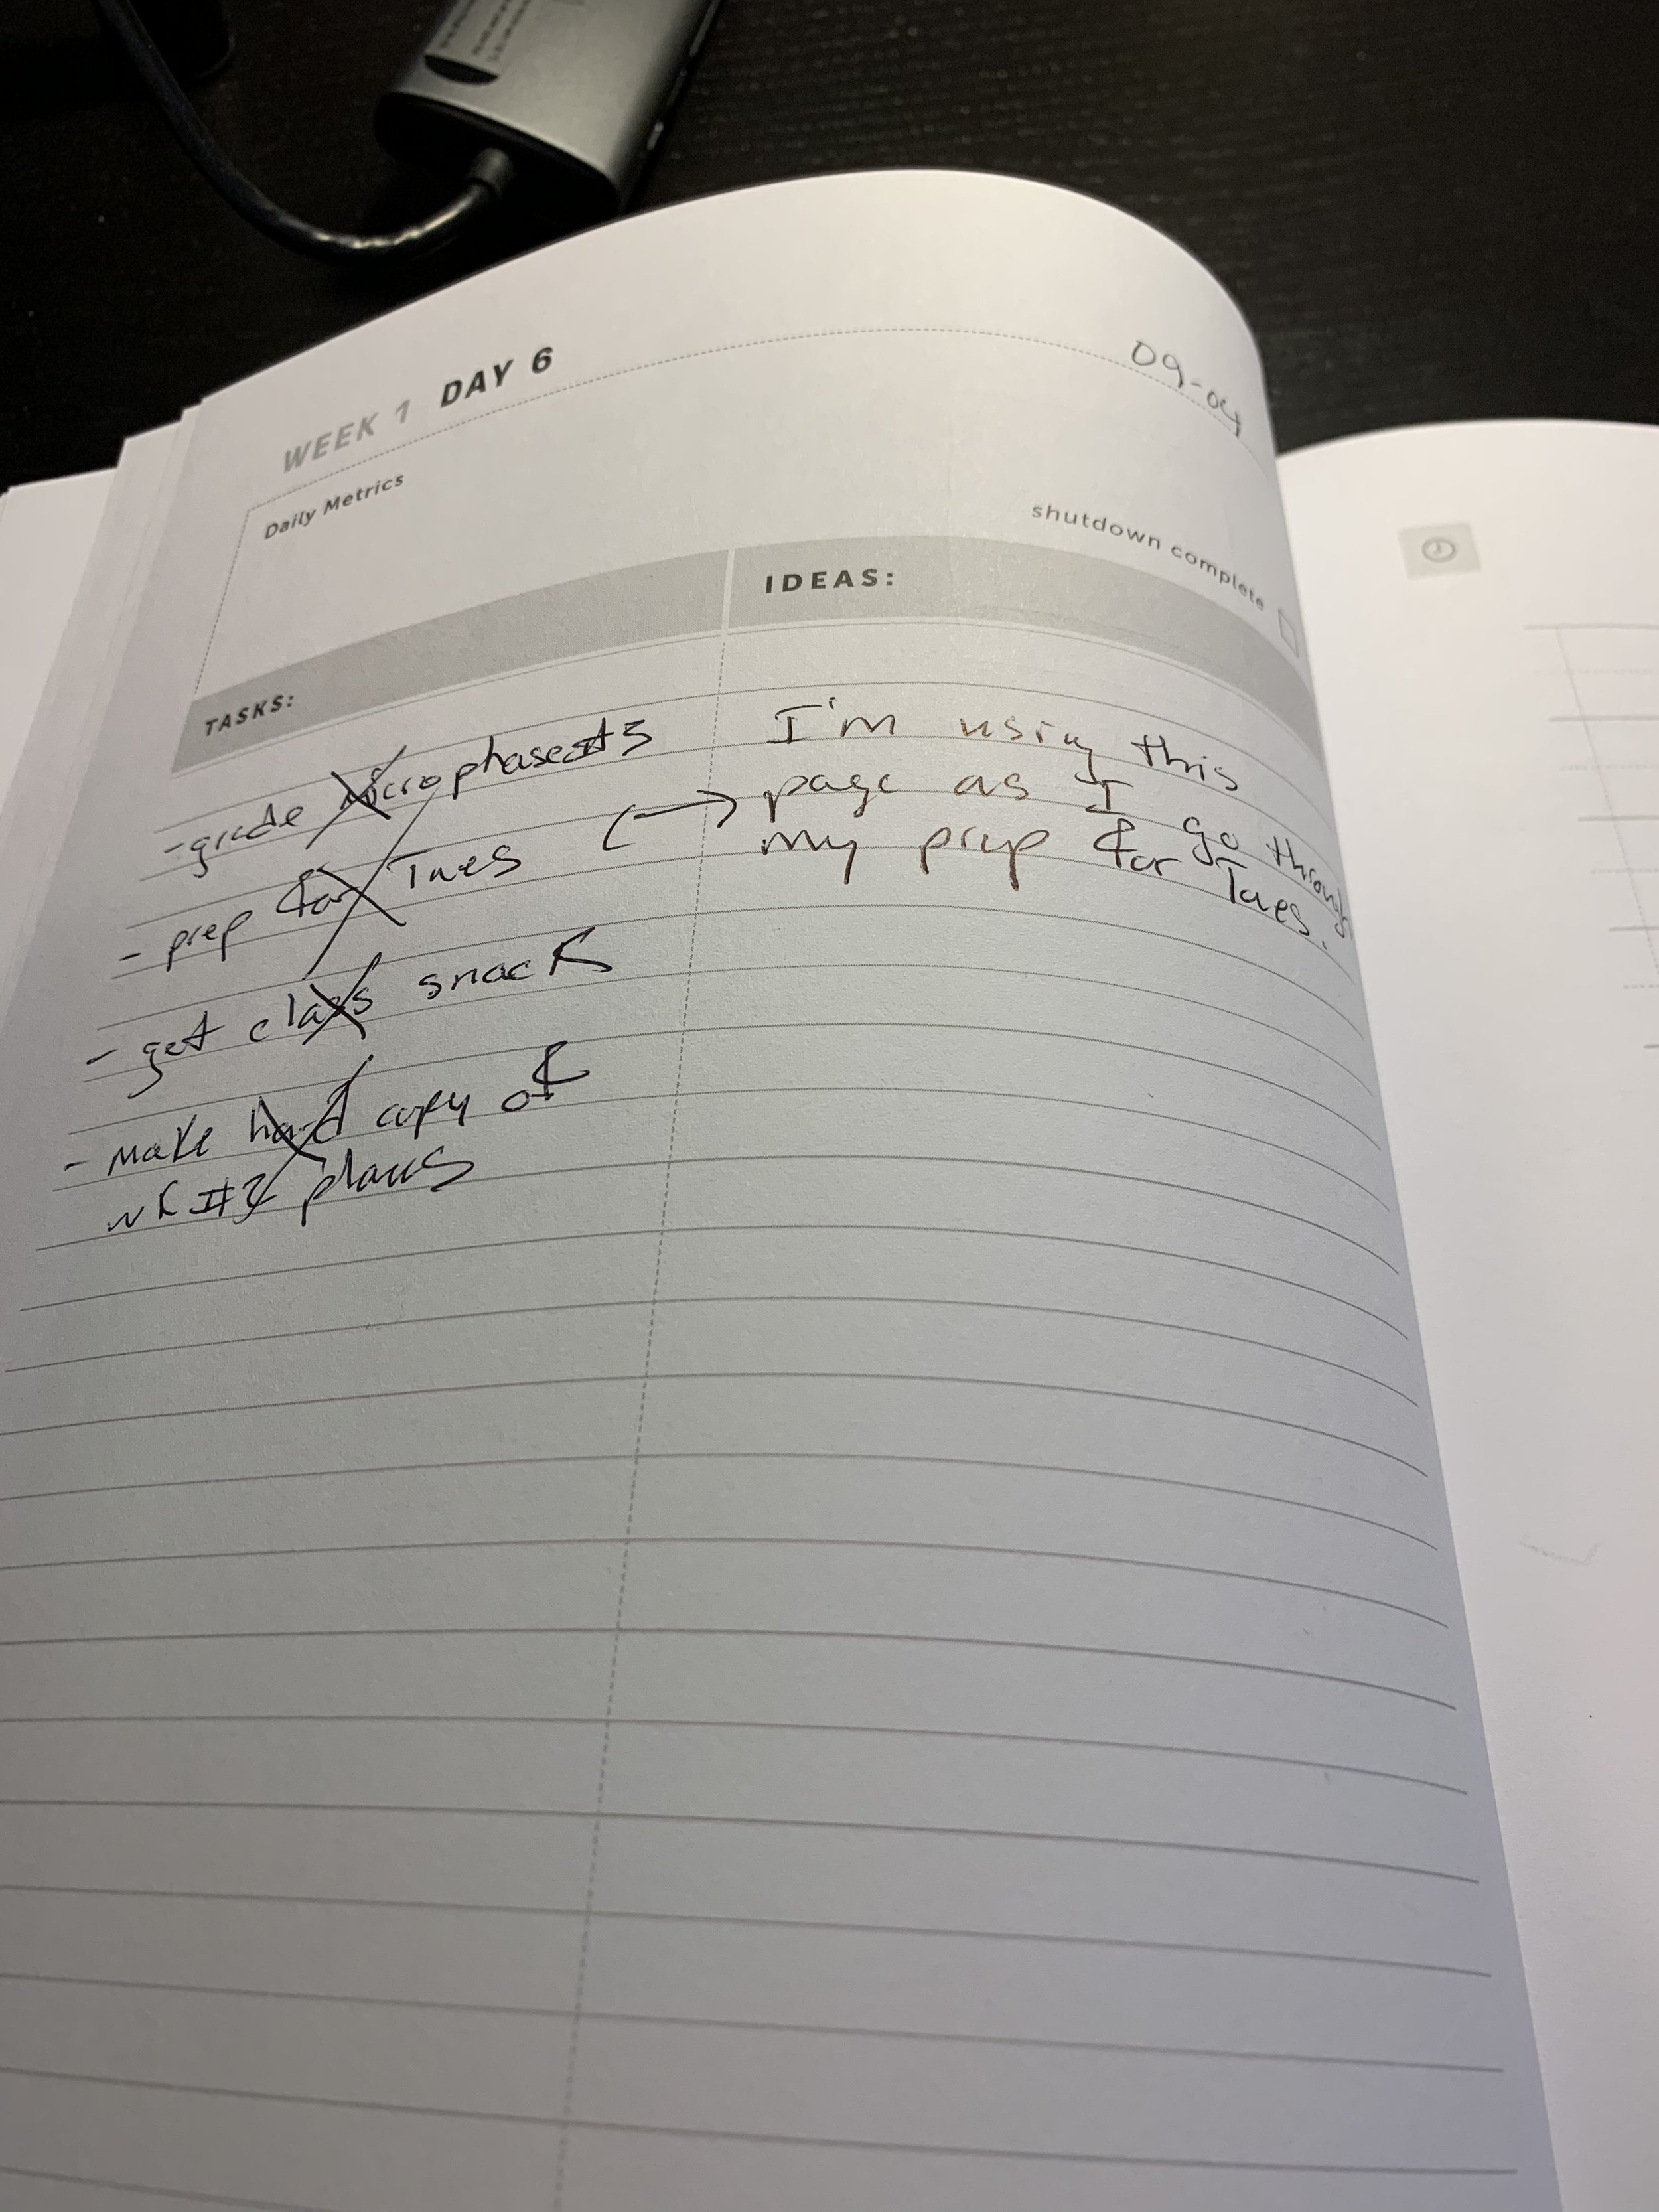 WEEK 1 DAY 6
09-04
Daily Metrics
shutdown complete
TASKS:
- grade Microphaseats
- prep for Tues
- get class snack
- make hard copy of
wk #2 plans
IDEAS:
I'm using this
page as I go through
my prep for Tues.